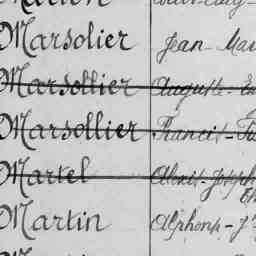 Marsolier Jean-
Marsollier Auguste-
Marsollier Francis-
Martel Alexis-Joseph
Martin Alphons-